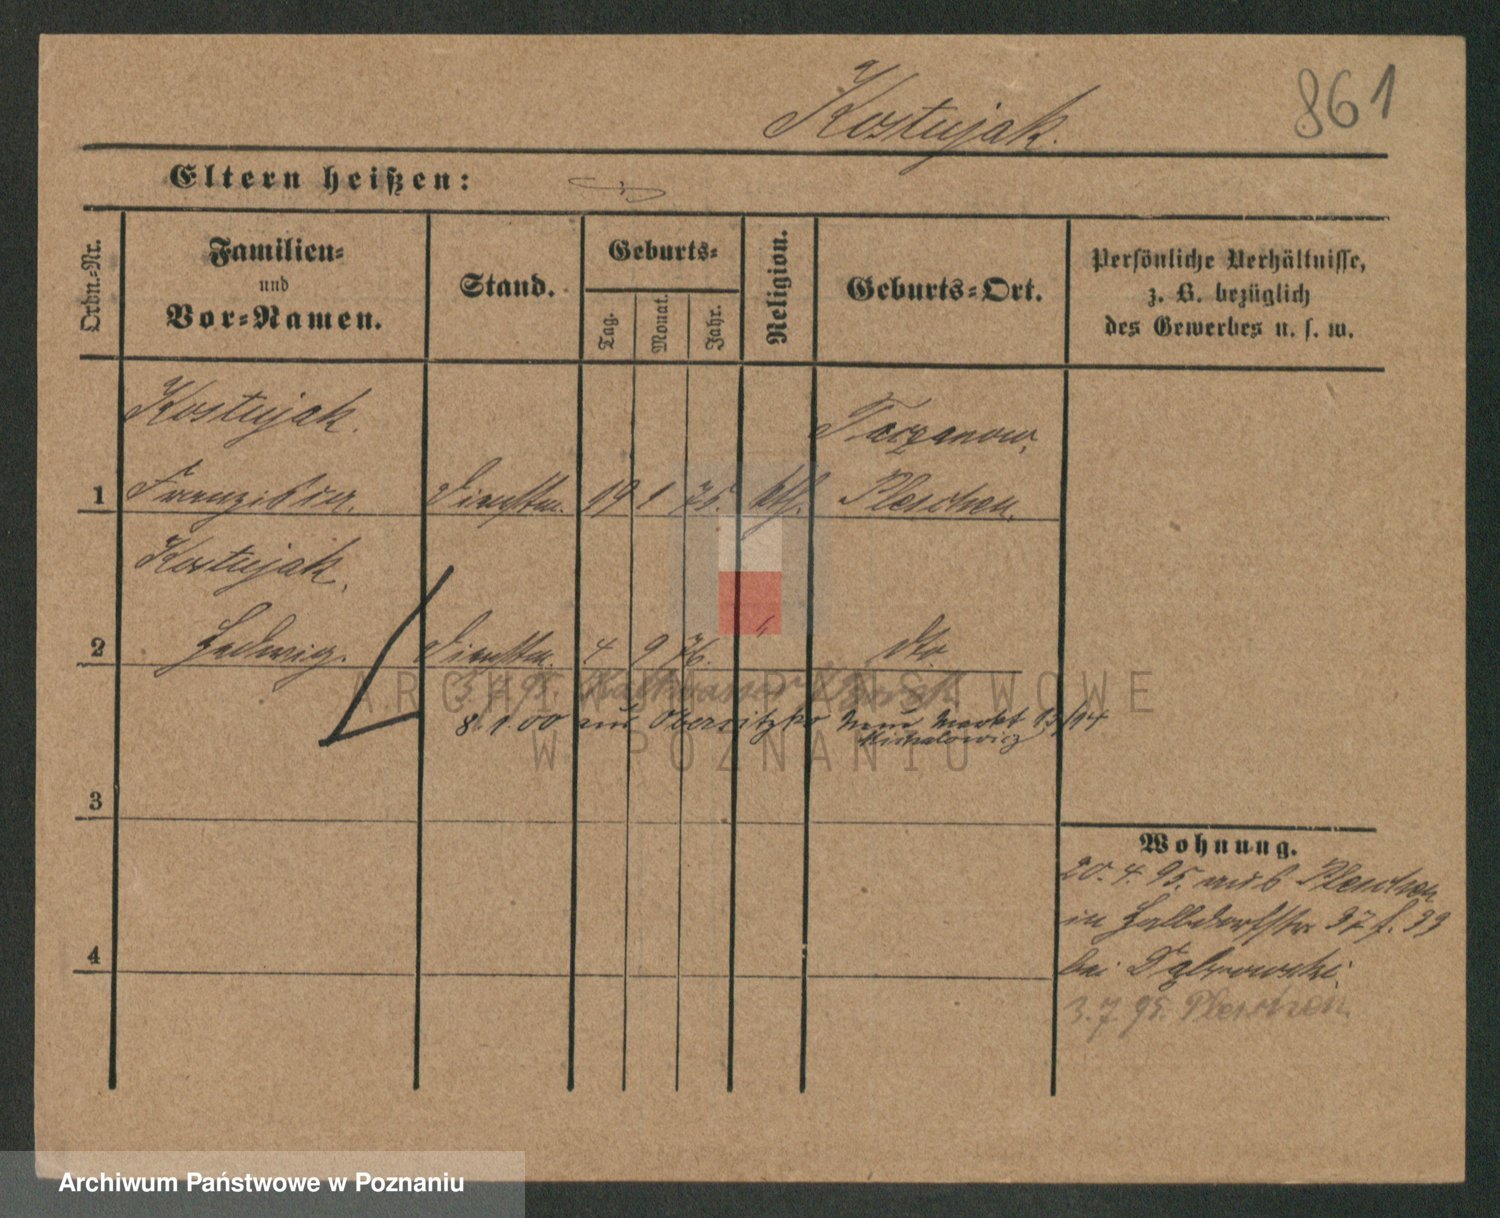 Kostujak.
861
Eltern heißen:
Ordn.-Nr.
Familien-
und
Vor-Namen.
Stand.
Geburts-
Tag.
Monat.
Jahr.
Religion.
Geburts-Ort.
Persönliche Verhältnisse,
z. B. bezüglich
des Gewerbes u. s. w.
Kostujak.
Tarzanow,
1 Franziskus. Dienstm. 19 1 75. kth. Pleschen.
Kostujak,
2 Hedwig. Dienstm. 4 9 76. " dto
ARCHIWUM PAŃSTWOWE
W POZNANIU
8.1.00 aus Obersitzko Neuer Markt 13/14
Michalowicz
3
4
Wohnung.
20. 4. 95. aus Pleschen
in Halbdorfstr 37 f. 39
bei Dąbrowski,
3. 7. 95. Pleschen
Archiwum Państwowe w Poznaniu